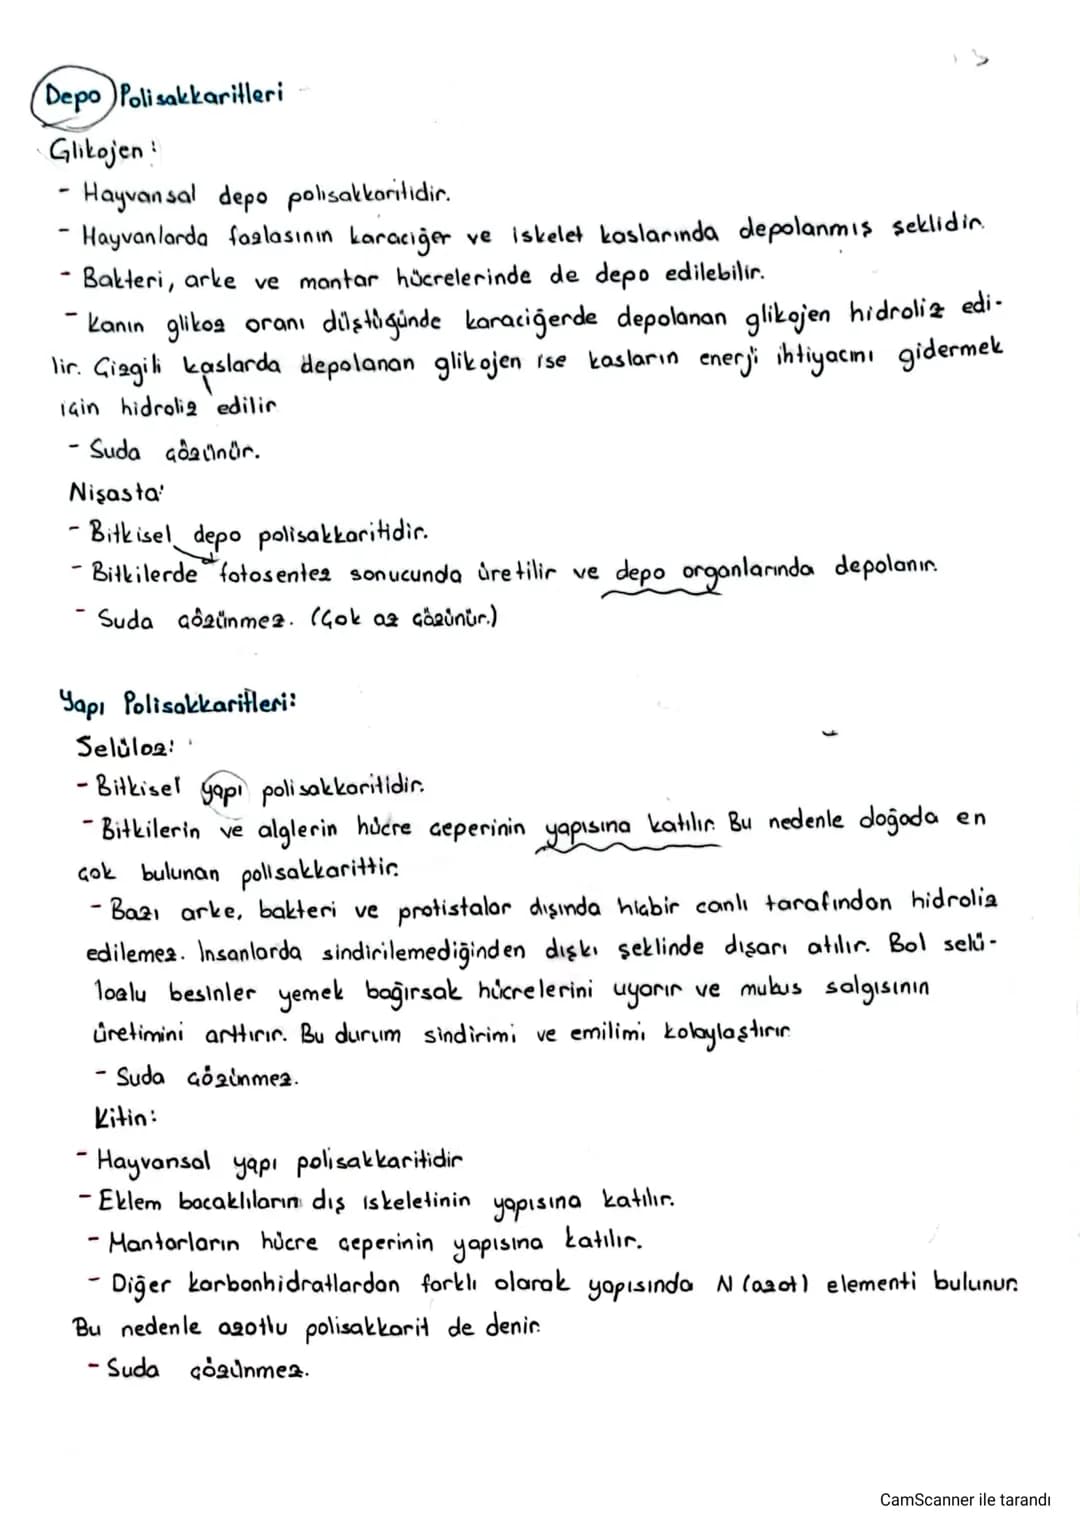 Depo Polisakkaritleri
Glikojen:
- Hayvansal depo polisakkaritidir.
- Hayvanlarda fazlasının karaciğer ve iskelet kaslarında depolanmış şeklidir.
- Bakteri, arke ve mantar hücrelerinde de depo edilebilir.
- Kanın glikoz oranı düştüğünde karaciğerde depolanan glikojen hidroliz edi-
lir. Çizgili kaslarda depolanan glikojen ise kasların enerji ihtiyacını gidermek
için hidroliz edilir
- Suda çözünür.
Nişasta:
- Bitkisel depo polisakkaritidir.
- Bitkilerde fotosentez sonucunda üretilir ve depo organlarında depolanır.
- Suda çözünmez. (Çok az çözünür.)
Yapı Polisakkaritleri:
Selüloz:
- Bitkisel yapı polisakkaritidir.
- Bitkilerin ve alglerin hücre çeperinin yapısına katılır. Bu nedenle doğada en
çok bulunan polisakkarittir.
- Bazı arke, bakteri ve protistalar dışında hiçbir canlı tarafından hidroliz
edilemez. İnsanlarda sindirilemediğinden dışkı şeklinde dışarı atılır. Bol selü-
lozlu besinler yemek bağırsak hücrelerini uyarır ve mukus salgısının
üretimini arttırır. Bu durum sindirimi ve emilimi kolaylaştırır.
- Suda çözünmez.
Kitin:
- Hayvansal yapı polisakkaritidir
- Eklem bacaklıların dış iskeletinin yapısına katılır.
- Mantarların hücre çeperinin yapısına katılır.
- Diğer karbonhidratlardan farklı olarak yapısında N (azot) elementi bulunur.
Bu nedenle azotlu polisakkarit de denir.
- Suda çözünmez.
CamScanner ile tarandı